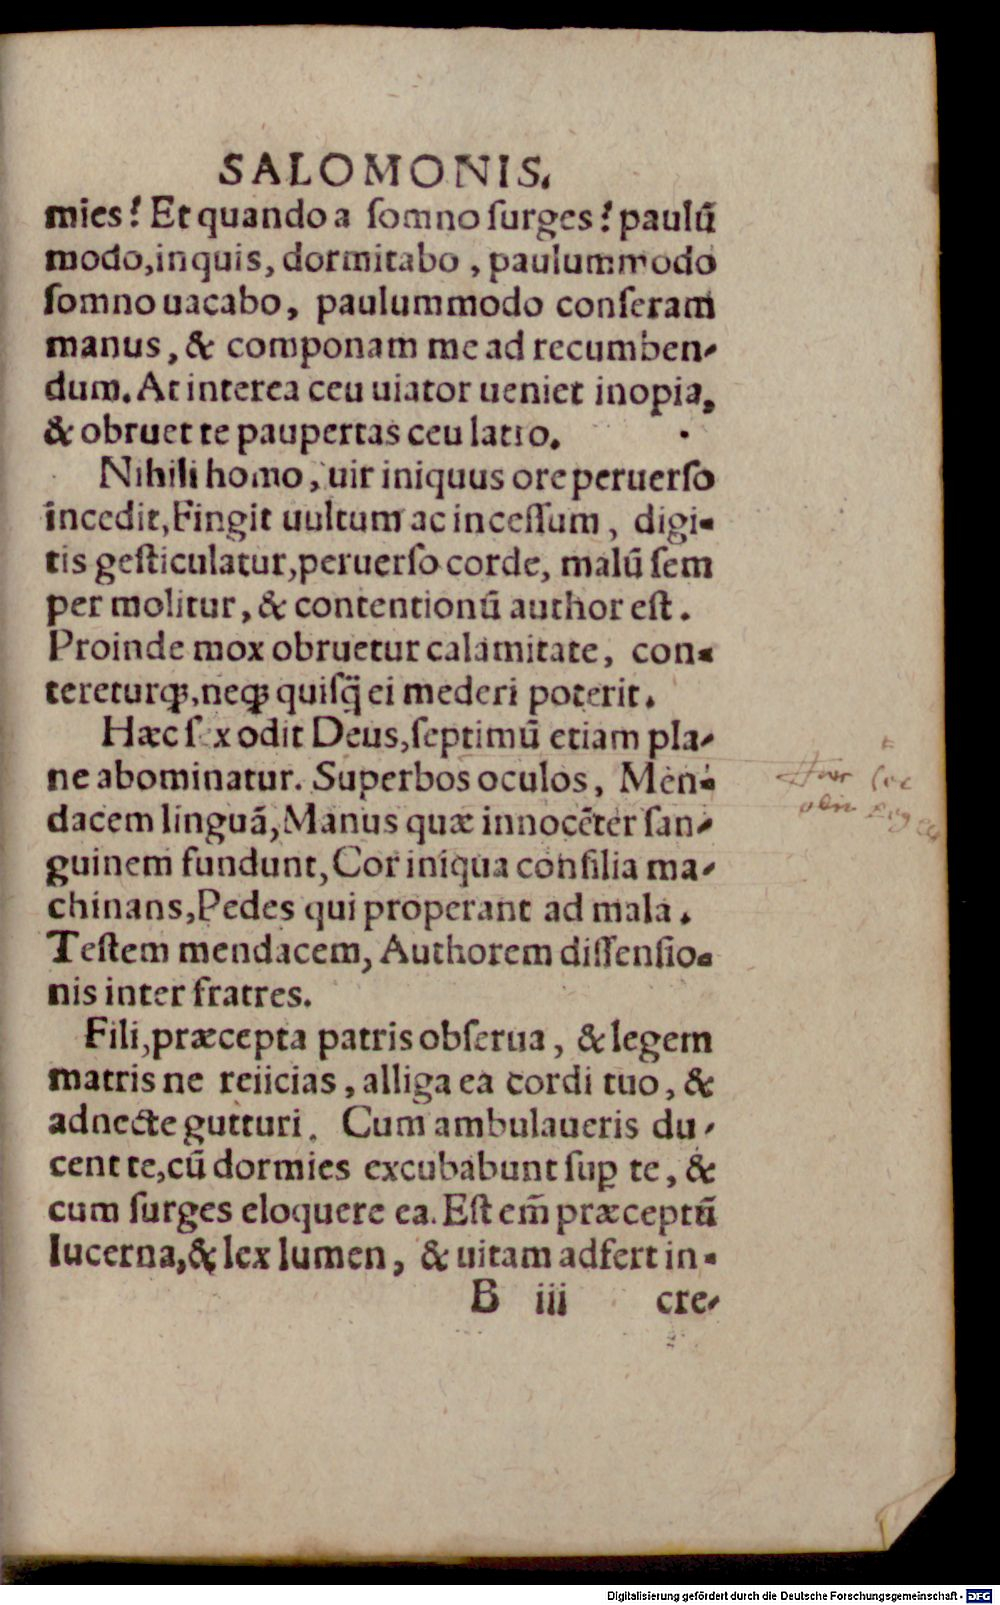 SALOMONIS.
mies? Et quando a ſomno ſurges? paulũ
modo, inquis, dormitabo, paulummodo
ſomno uacabo, paulummodo conſeram
manus, & componam me ad recumben-
dum. At interea ceu uiator ueniet inopia,
& obruet te paupertas ceu latro.
Nihili homo, uir iniquus ore peruerſo
incedit, Fingit uultum ac inceſſum, digi-
tis geſticulatur, peruerſo corde, malũ ſem
per molitur, & contentionũ author eſt.
Proinde mox obruetur calamitate, con-
tereturq;, neq; quiſq̃ ei mederi poterit.
Hæc ſex odit Deus, ſeptimũ etiam pla-
ne abominatur. Superbos oculos, Men-
dacem linguã, Manus quæ innocẽter ſan-
guinem fundunt, Cor iniqua conſilia ma-
chinans, Pedes qui properant ad mala.
Teſtem mendacem, Authorem diſſenſio-
nis inter fratres.
Fili, præcepta patris obſerua, & legem
matris ne reiicias, alliga ea cordi tuo, &
adnecte gutturi. Cum ambulaueris du-
cent te, cũ dormies excubabunt ſuꝑ te, &
cum ſurges eloquere ea. Eſt em̃ præceptũ
lucerna, & lex lumen, & uitam adfert in-
B iii cre-
Digitalisierung gefördert durch die Deutsche Forschungsgemeinschaft - DFG